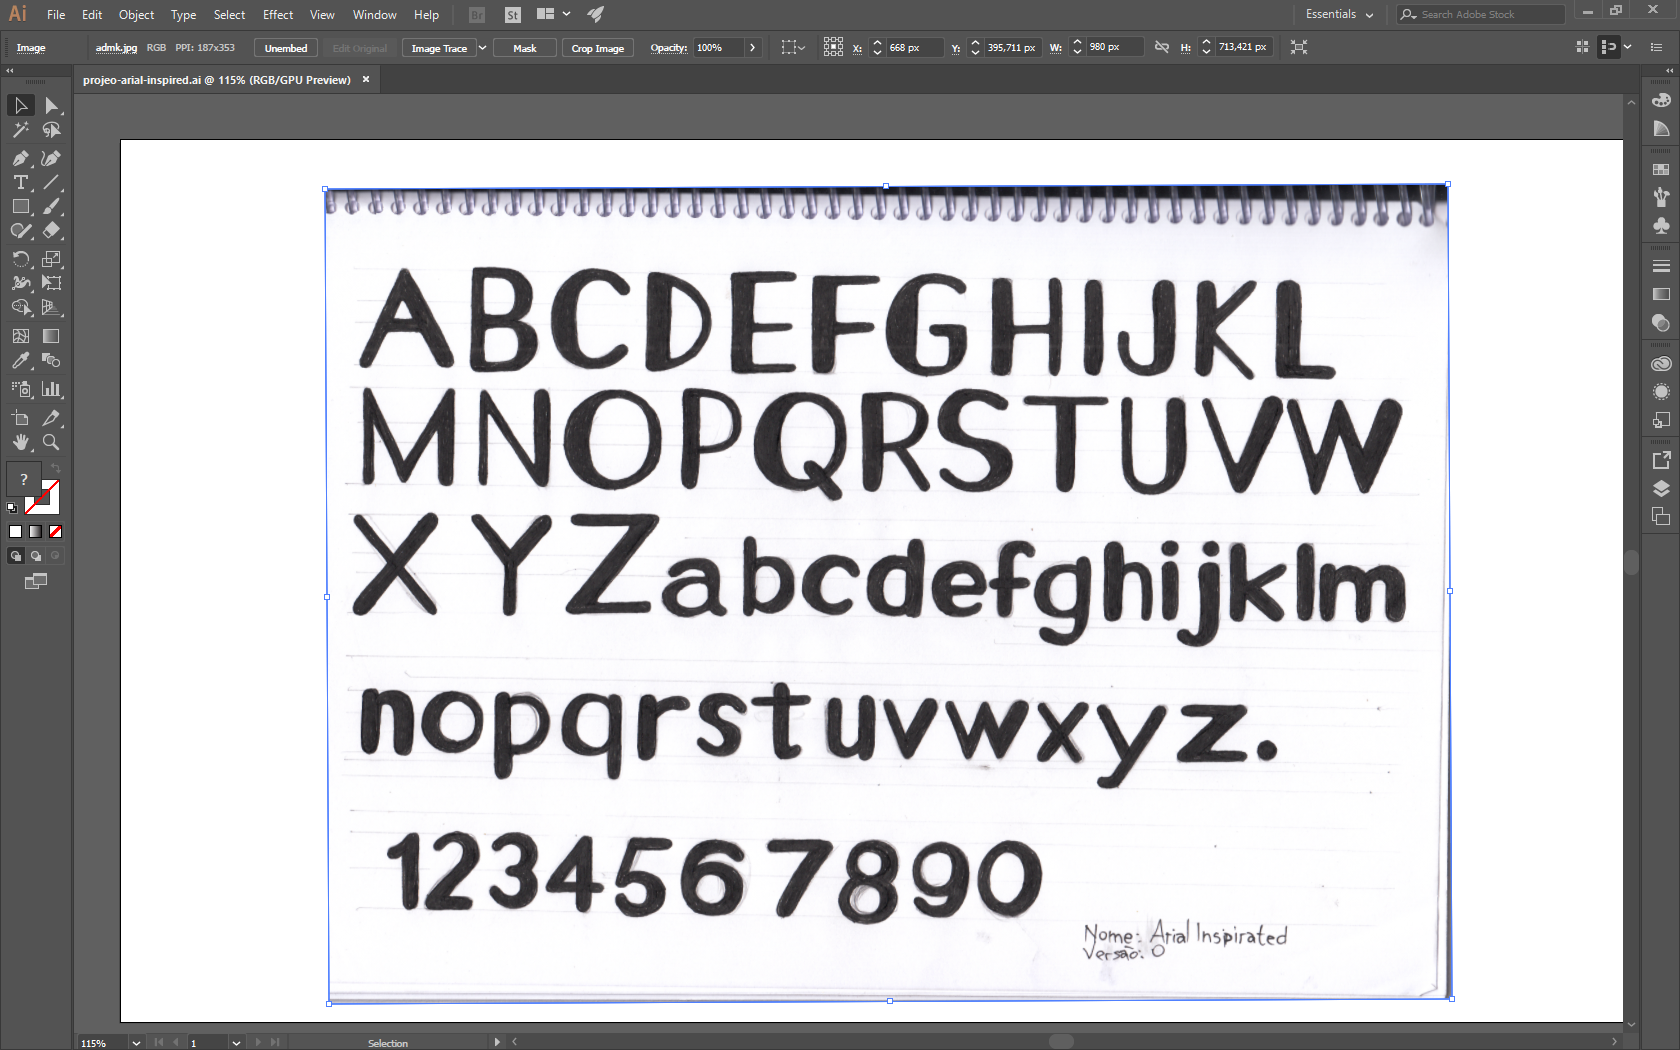 Ai File Edit Object Type Select Effect View Window Help Br St Essentials Search Adobe Stock
Image admk.jpg RGB PPI: 187x353 Unembed Edit Original Image Trace Mask Crop Image Opacity: 100% X: 668 px Y: 395,711 px W: 980 px H: 713,421 px
projeo-arial-inspired.ai @ 115% (RGB/GPU Preview) ×
T
?
ABCDEFGHIJKL
MNOPQRSTUVW
X Y Z a b c d e f g h i j k l m
n o p q r s t u v w x y z .
1 2 3 4 5 6 7 8 9 0
Nome: Arial Inspirated
Versão: 0
115% 1 Selection